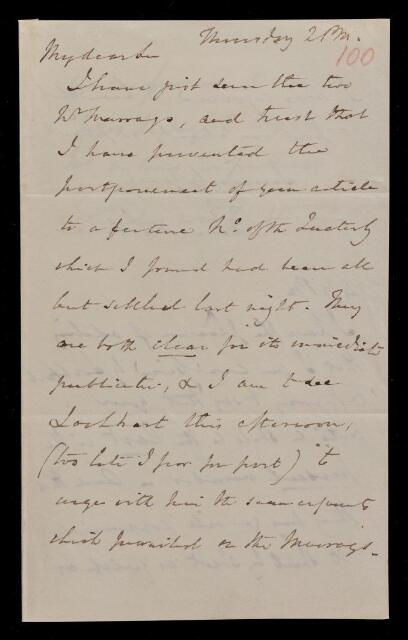 Thursday 2 P.M.
100
My dear Sir
I have just seen the two
Mr Murrays, and trust that
I have prevented the
postponement of your article
to a future No. of the Quarterly
which I found had been all
but settled last night. They
are both clear for its immediate
publication, & I am to see
Lockhart this afternoon,
(too late I fear for post) to
urge with him the same arguments
which prevailed on the Murrays.